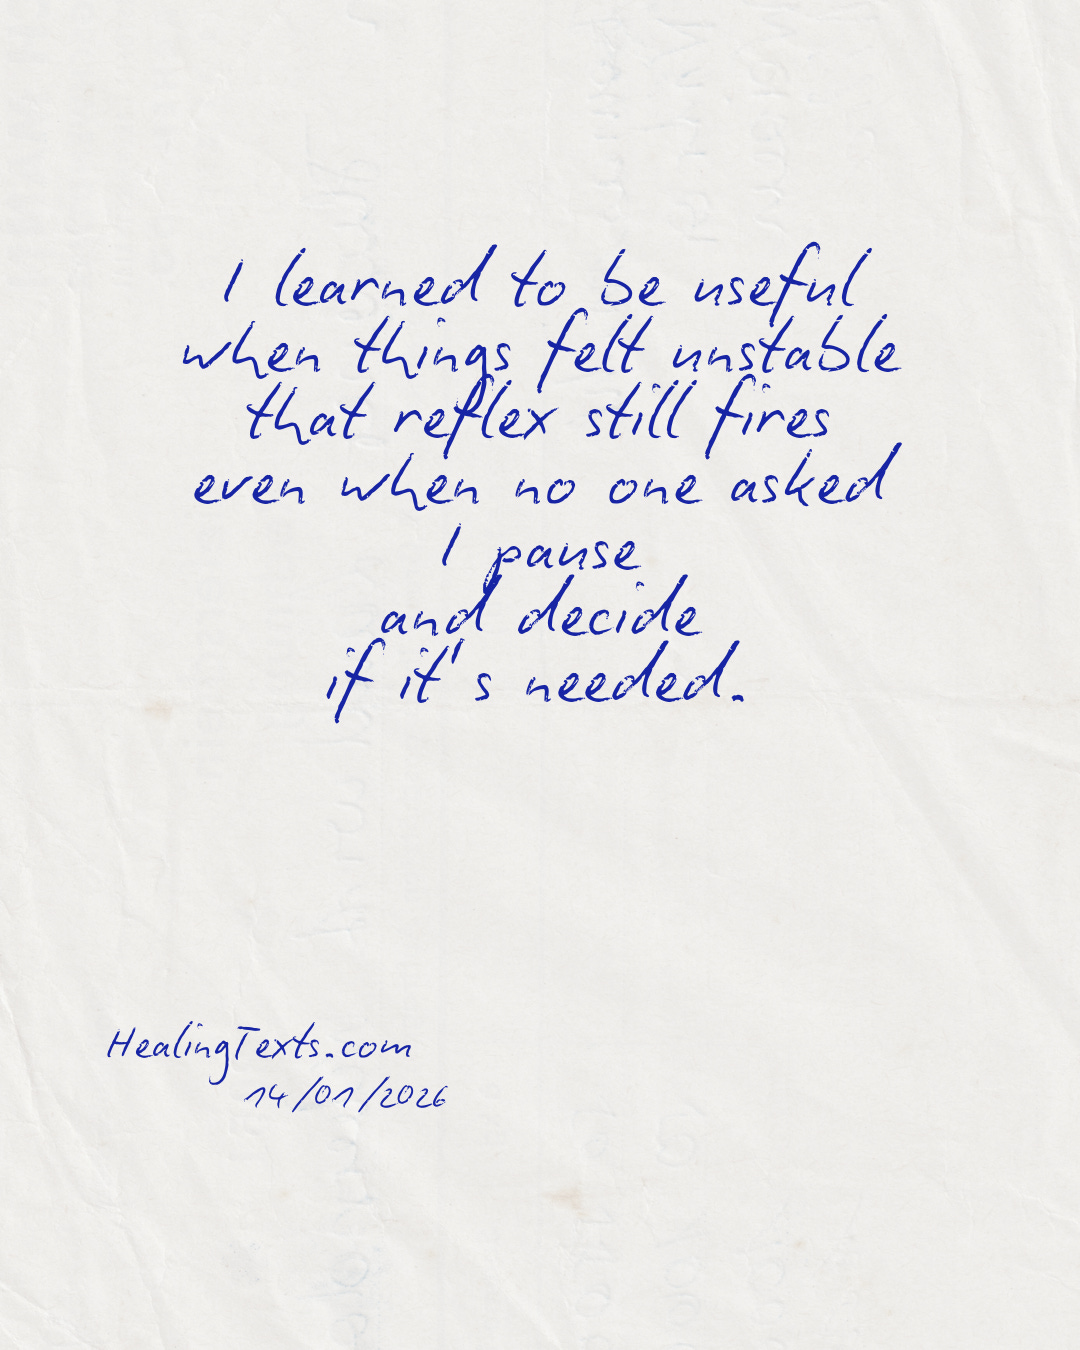 I learned to be useful
when things felt unstable
that reflex still fires
even when no one asked
I pause
and decide
if it's needed.
HealingTexts.com
14/01/2026